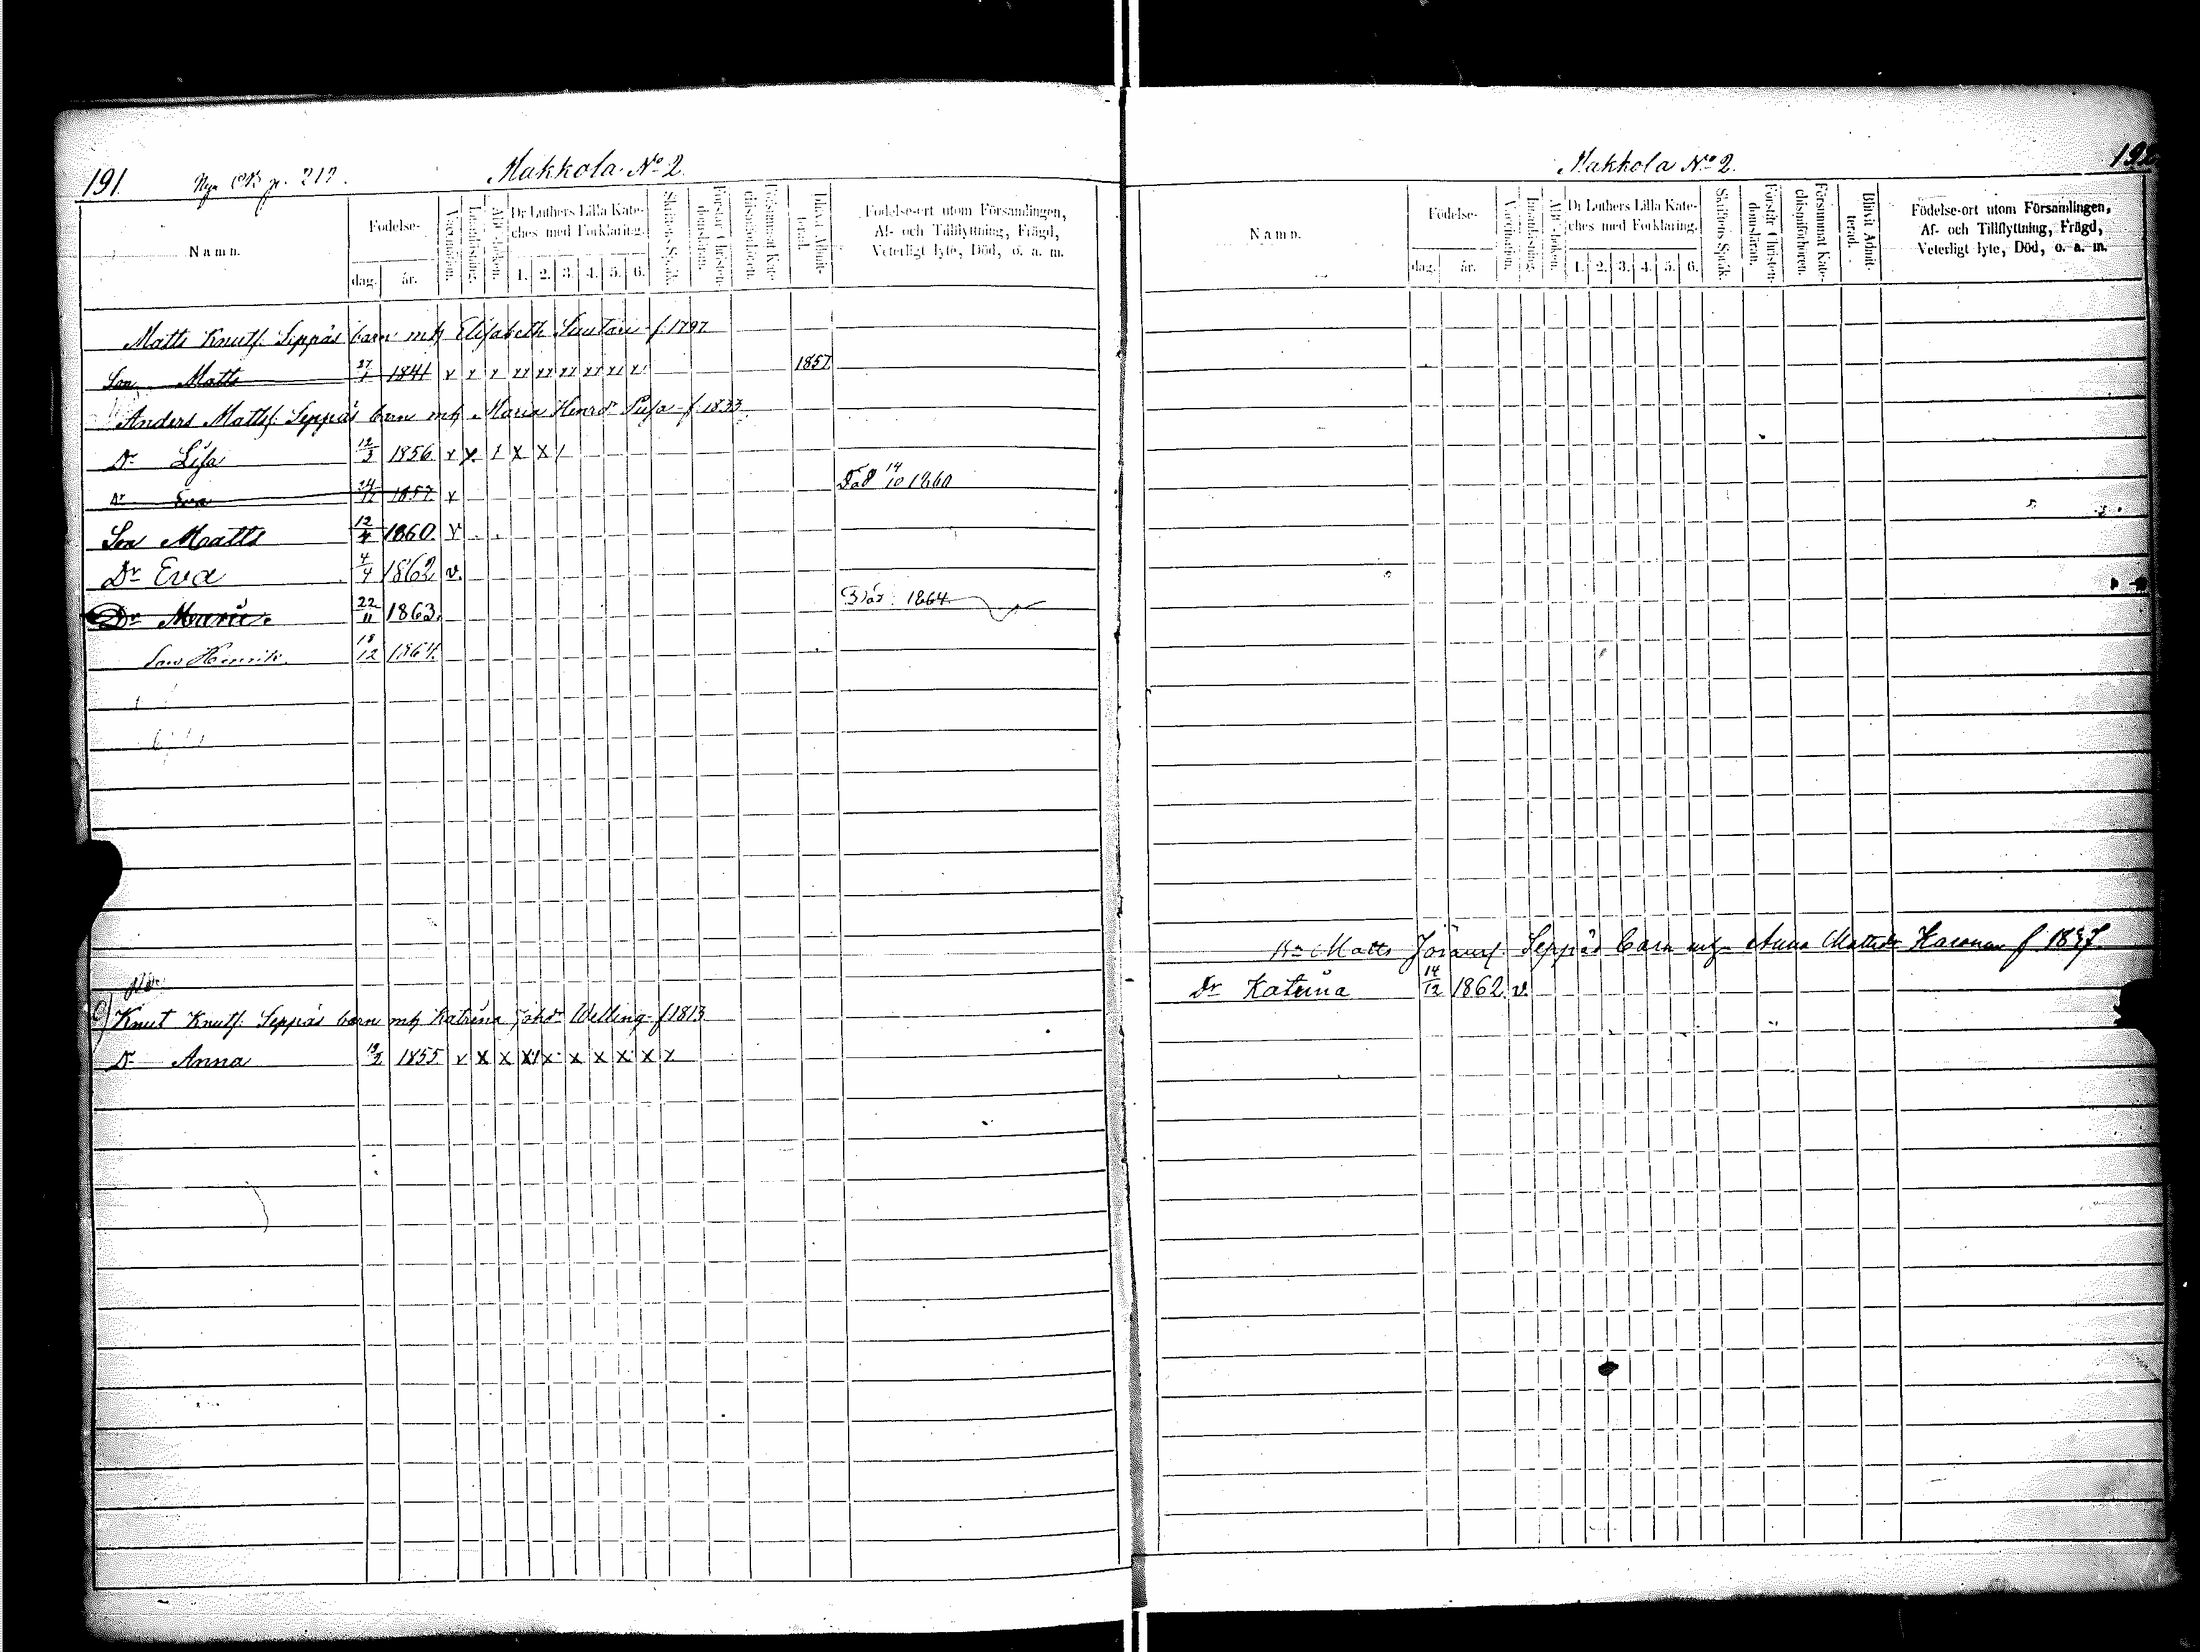 191.
Nya CB p. 217.
Makkola No 2.
Namn.
Födelse-
dag. år.
Vaccination.
Innanläsning.
Abc-boken.
Dr Luthers Lilla Kate-
ches med Förklaring.
1. 2. 3. 4. 5. 6.
Skriftens Språk.
Förstår Christen-
domsläran.
Försummat Kate-
chismiförhören.
Blivit Admit-
terad.
Födelse-ort utom Församlingen,
Af- och Tillflyttning, Frägd,
Veterligt lyte, Död, o. a. m.
Matts Knutss. Seppäs barn mh Elisabeth f. 1797
Son Matts 27/1 1841 v x x xx xx xx xx xx xx 1857
Anders Mattss. Seppäs barn mh Maria Henrdr f. 1833.
Dr Lisa 12/3 1856 v x / x x /
Dr Eva 1857 v Död 14/10 1860
Son Matts 12/4 1860. v
Dr Eva 4/4 1862 v.
Dr Maria 22/11 1863. 1864.
Son Henrik 18/12 1864.
Knut Knutss. Seppäs barn mh Katrina Johdr Welling f 1813
Dr Anna 19/2 1855 v x x x x x x x x x
192
Makkola No 2.
Namn.
Födelse-
dag. år.
Vaccination.
Innanläsning.
Abc-boken.
Dr Luthers Lilla Kate-
ches med Förklaring.
1. 2. 3. 4. 5. 6.
Skriftens Språk.
Förstår Christen-
domsläran.
Försummat Kate-
chismiförhören.
Blivit Admit-
terad.
Födelse-ort utom Församlingen,
Af- och Tillflyttning, Frägd,
Veterligt lyte, Död, o. a. m.
Matts Göranss. Seppäs barn mh Anna Mattsdr f 1837.
Dr Katrina 14/12 1862. v.